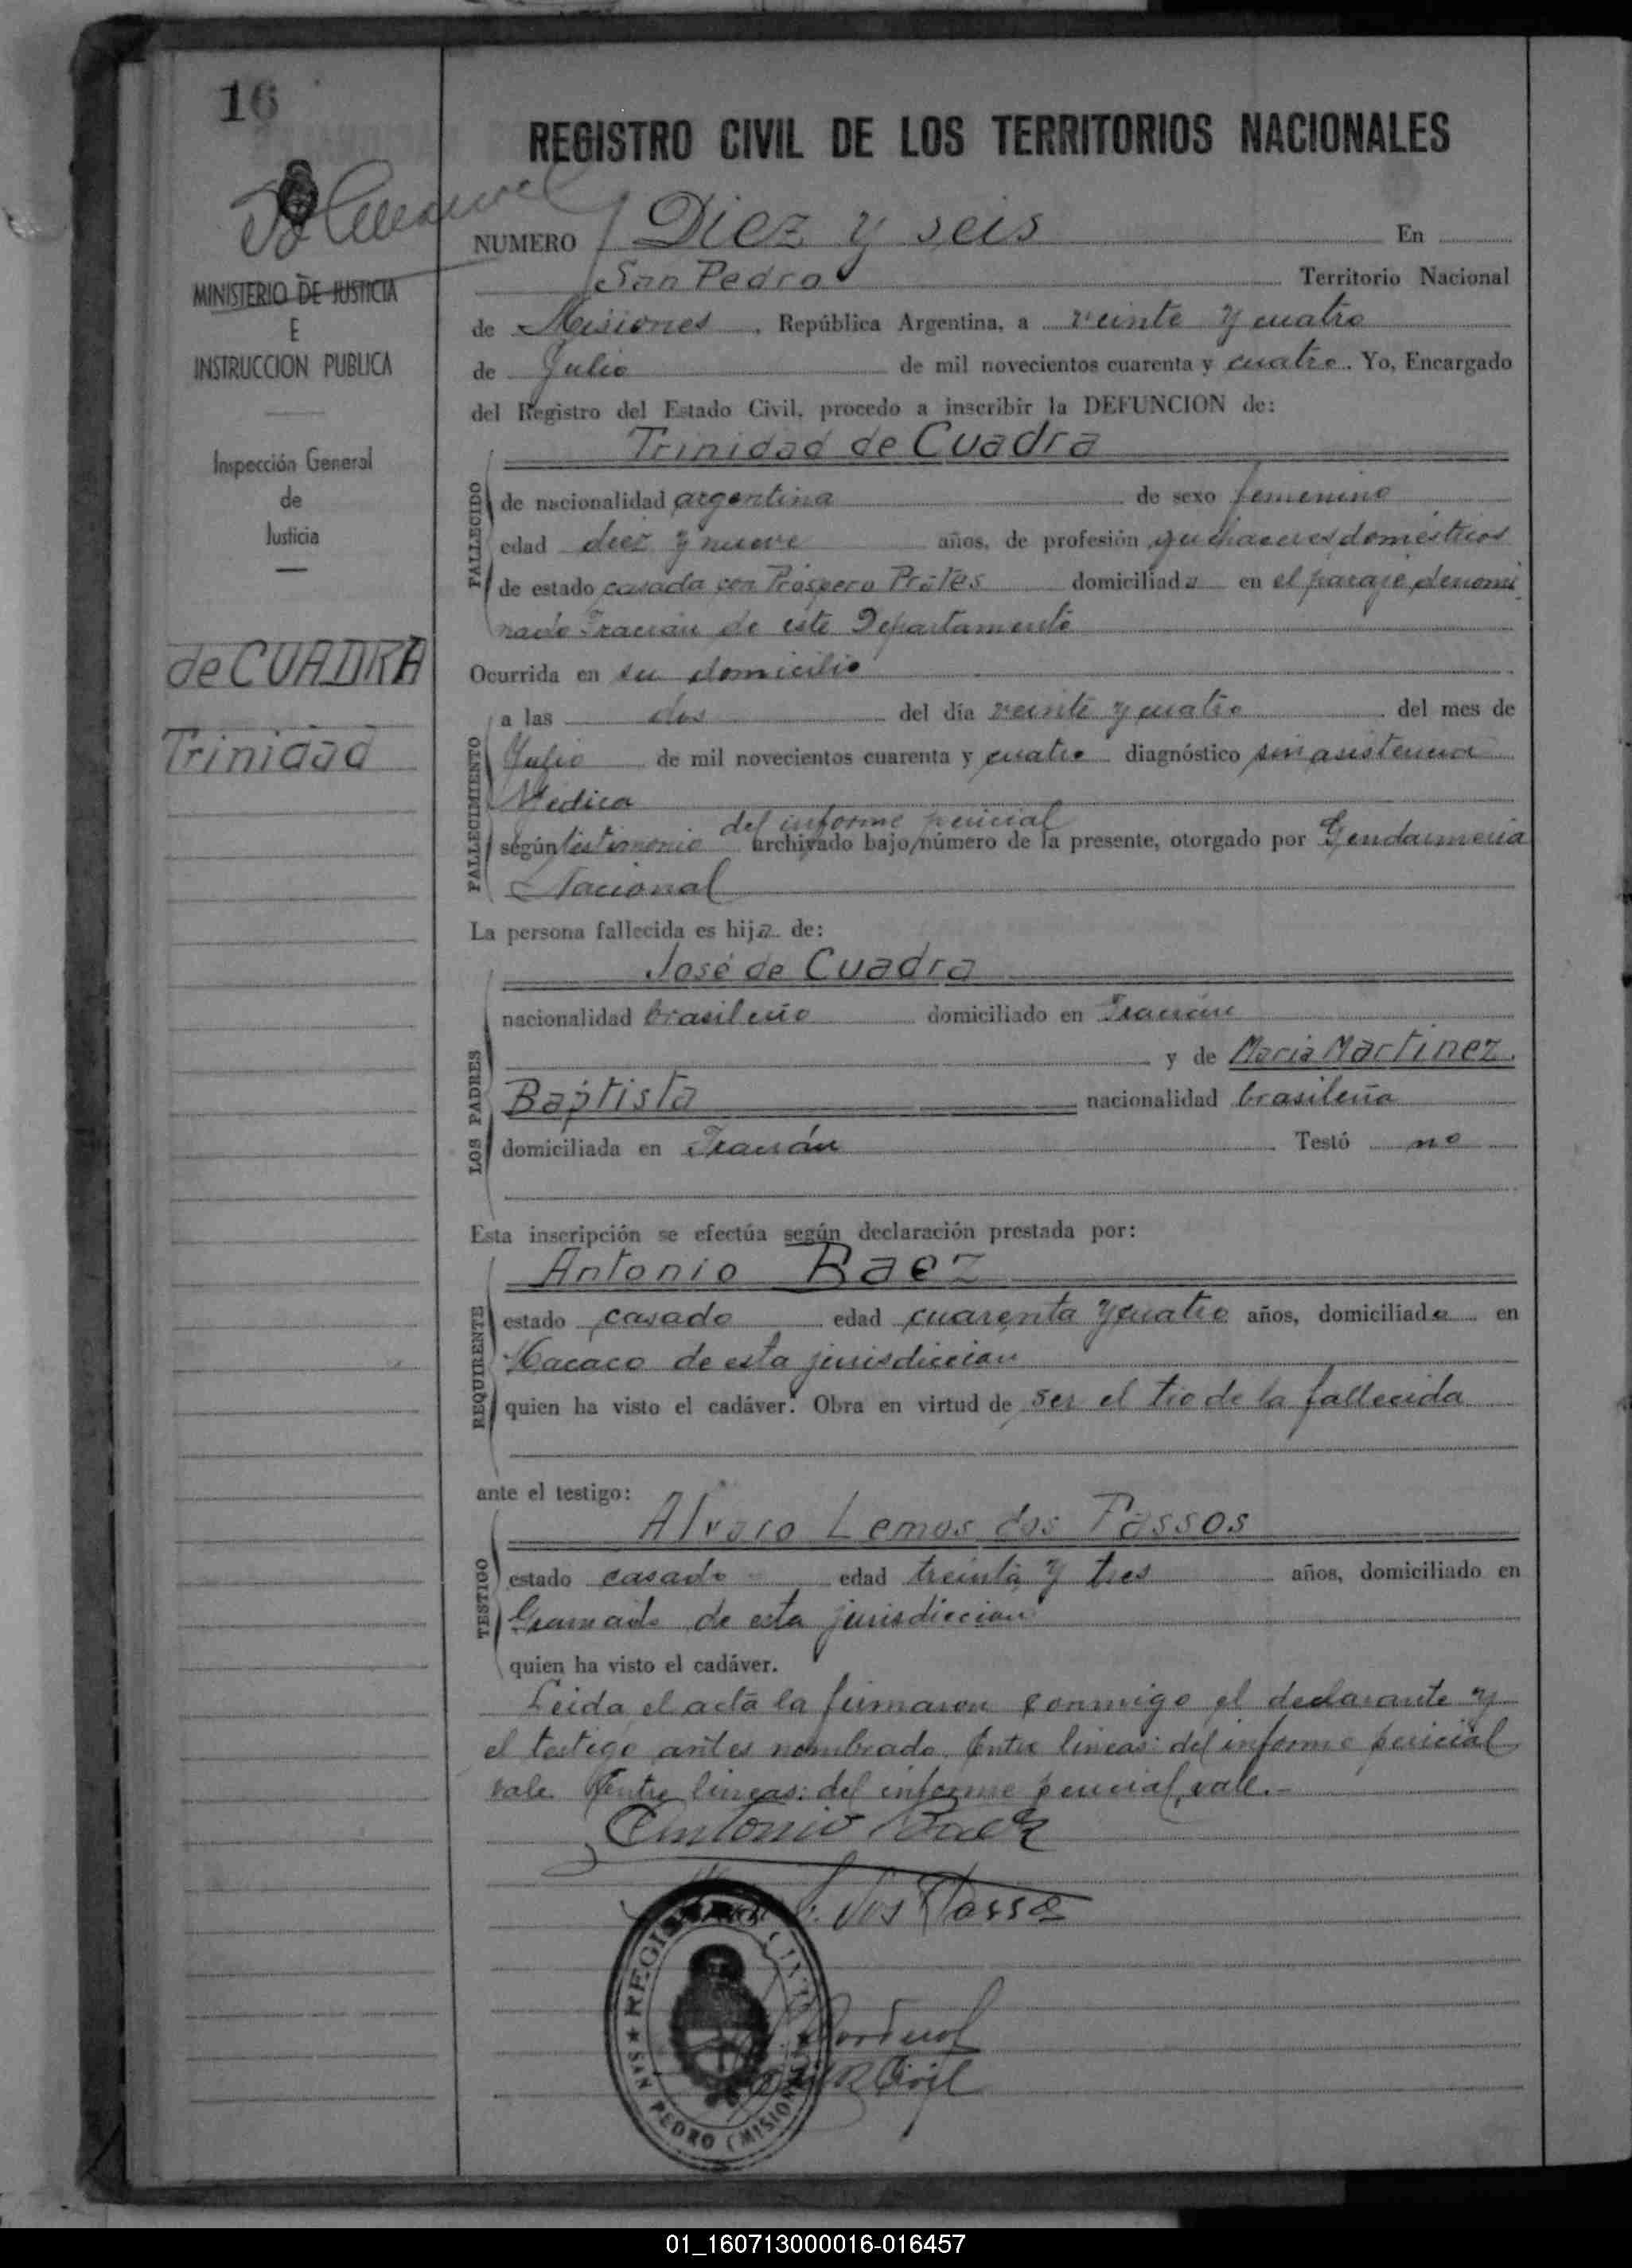 16
REGISTRO CIVIL DE LOS TERRITORIOS NACIONALES
NUMERO Diez y seis En
San Pedro Territorio Nacional
de Misiones, República Argentina, a veinte y cuatro
de Julio de mil novecientos cuarenta y cuatro. Yo, Encargado
del Registro del Estado Civil, procedo a inscribir la DEFUNCION de:
Trinidad de Cuadra
MINISTERIO DE JUSTICIA
E
INSTRUCCION PUBLICA
Inspección General
de
Justicia
de CUADRA
Trinidad
FALLECIDO
de nacionalidad argentina de sexo femenino
edad diez y nueve años, de profesión quehaceres domésticos
de estado casada con Próspero Prates domiciliada en el paraje denomi
nado de este Departamento
Ocurrida en su domicilio
FALLECIMIENTO
a las dos del día veinte y cuatro del mes de
Julio de mil novecientos cuarenta y cuatro diagnóstico sin asistencia
Médica
del informe pericial
según testimonio archivado bajo número de la presente, otorgado por Gendarmeria
Nacional
La persona fallecida es hija de:
LOS PADRES
José de Cuadra
nacionalidad brasileño domiciliado en
y de Maria Martinez
Baptista nacionalidad brasileña
domiciliada en Testó no
Esta inscripción se efectúa según declaración prestada por:
REQUIRENTE
Antonio Baez
estado casado edad cuarenta y cuatro años, domiciliado en
Macaco de esta jurisdiccion
quien ha visto el cadáver. Obra en virtud de ser el tio de la fallecida
ante el testigo:
TESTIGO
Alvaro Lemos dos Passos
estado casado edad treinta y tres años, domiciliado en
Gramado de esta jurisdiccion
quien ha visto el cadáver.
Leida el acta la firmaron conmigo el declarante y
el testigo antes nombrado. Entre lineas: del informe pericial
vale. Entre lineas: del informe pericial, vale.-
Antonio Baez
L. dos Passos
REGISTRO CIVIL
SAN PEDRO (MISIONES)
R. Civil
01_160713000016-016457